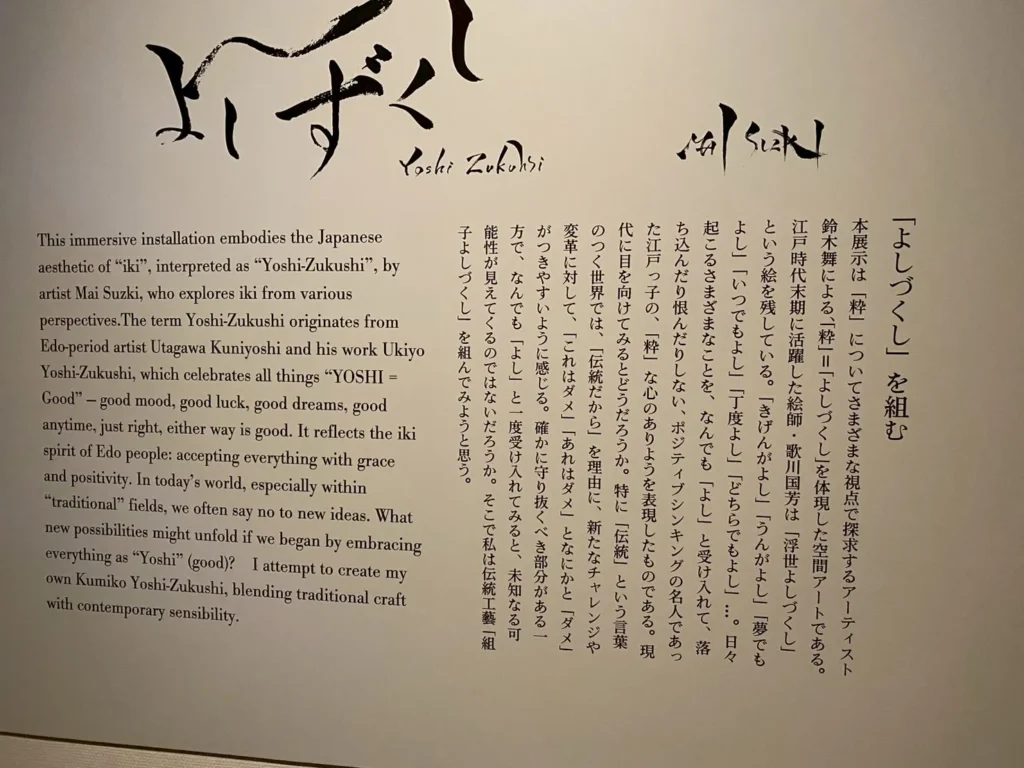 よしずくし
Yoshi Zukushi
MAI SUZUKI
This immersive installation embodies the Japanese
aesthetic of “iki”, interpreted as “Yoshi-Zukushi”, by
artist Mai Suzki, who explores iki from various
perspectives.The term Yoshi-Zukushi originates from
Edo-period artist Utagawa Kuniyoshi and his work Ukiyo
Yoshi-Zukushi, which celebrates all things “YOSHI =
Good” – good mood, good luck, good dreams, good
anytime, just right, either way is good. It reflects the iki
spirit of Edo people: accepting everything with grace
and positivity. In today’s world, especially within
“traditional” fields, we often say no to new ideas. What
new possibilities might unfold if we began by embracing
everything as “Yoshi” (good)? I attempt to create my
own Kumiko Yoshi-Zukushi, blending traditional craft
with contemporary sensibility.
「よしづくし」を組む
本展示は「粋」についてさまざまな視点で探求するアーティスト
鈴木舞による、「粋」＝「よしづくし」を体現した空間アートである。
江戸時代末期に活躍した絵師・歌川国芳は「浮世よしづくし」
という絵を残している。「きげんがよし」「うんがよし」「夢でも
よし」「いつでもよし」「丁度よし」「どちらでもよし」…。日々
起こるさまざまなことを、なんでも「よし」と受け入れて、落
ち込んだり恨んだりしない、ポジティブシンキングの名人であっ
た江戸っ子の、「粋」な心のありようを表現したものである。現
代に目を向けてみるとどうだろうか。特に「伝統」という言葉
のつく世界では、「伝統だから」を理由に、新たなチャレンジや
変革に対して、「これはダメ」「あれはダメ」となにかと「ダメ」
がつきやすいように感じる。確かに守り抜くべき部分がある一
方で、なんでも「よし」と一度受け入れてみると、未知なる可
能性が見えてくるのではないだろうか。そこで私は伝統工藝「組
子よしづくし」を組んでみようと思う。